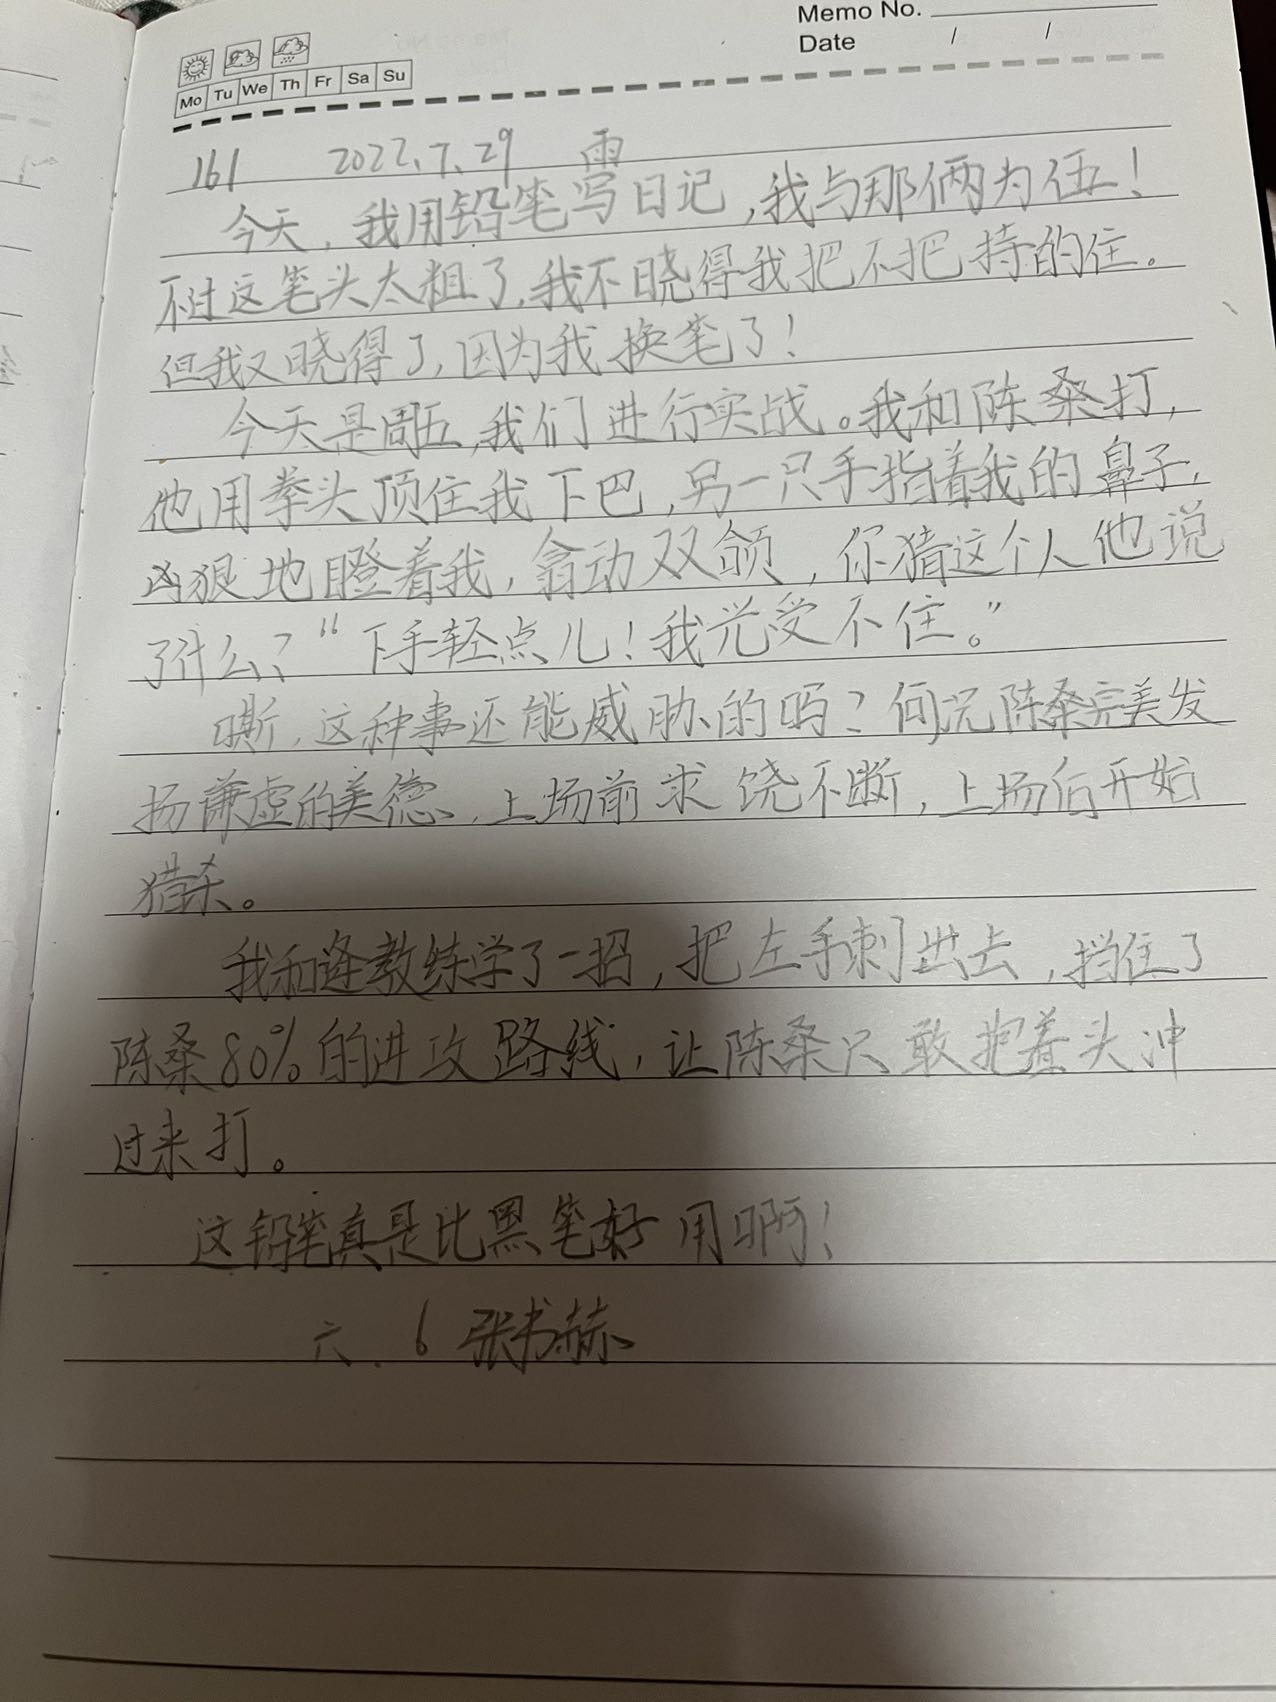 Memo No.
Date / /
Mo Tu We Th Fr Sa Su
161 2022.7.29 雨
今天，我用铅笔写日记，我与那俩为伍！
不过这笔头太粗了，我不晓得我把不把持的住。
但我又晓得了，因为我换笔了！
今天是周五，我们进行实战。我和陈桑打，
他用拳头顶住我下巴，另一只手指着我的鼻子，
凶狠地瞪着我，翕动双颌，你猜这个人他说
了什么？“下手轻点儿！我光受不住。”
嘶，这种事还能威胁的吗？何况陈桑完美发
扬谦虚的美德，上场前求饶不断，上场后开始
猎杀。
我和逄教练学了一招，把左手刺出去，挡住了
陈桑80%的进攻路线，让陈桑只敢抱着头冲
过来打。
这铅笔真是比黑笔好用啊！
六．6 张书赫